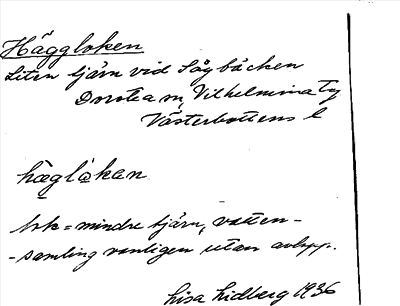 Häggloken
Liten tjärn vid Sågbäcken
Dorotea m, Vilhelmina tg
Västerbottens l
häglọkan
lok = mindre tjärn, vatten-
-samling vanligen utan avlopp.
Lisa Lidberg 1936